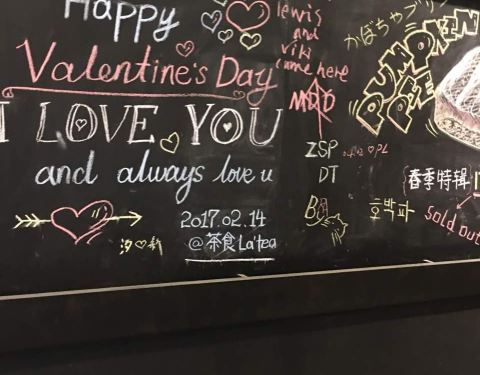 Happy
Valentine's Day
I LOVE YOU
and always love u
2017.02.14
@茶食La'tea
汐
lewis
and
viki
came here
ZSP
DT
かぼちゃプリ
PUMPKIN
春季特辑
호박파
Sold out